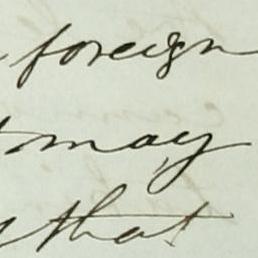 foreign
may
that